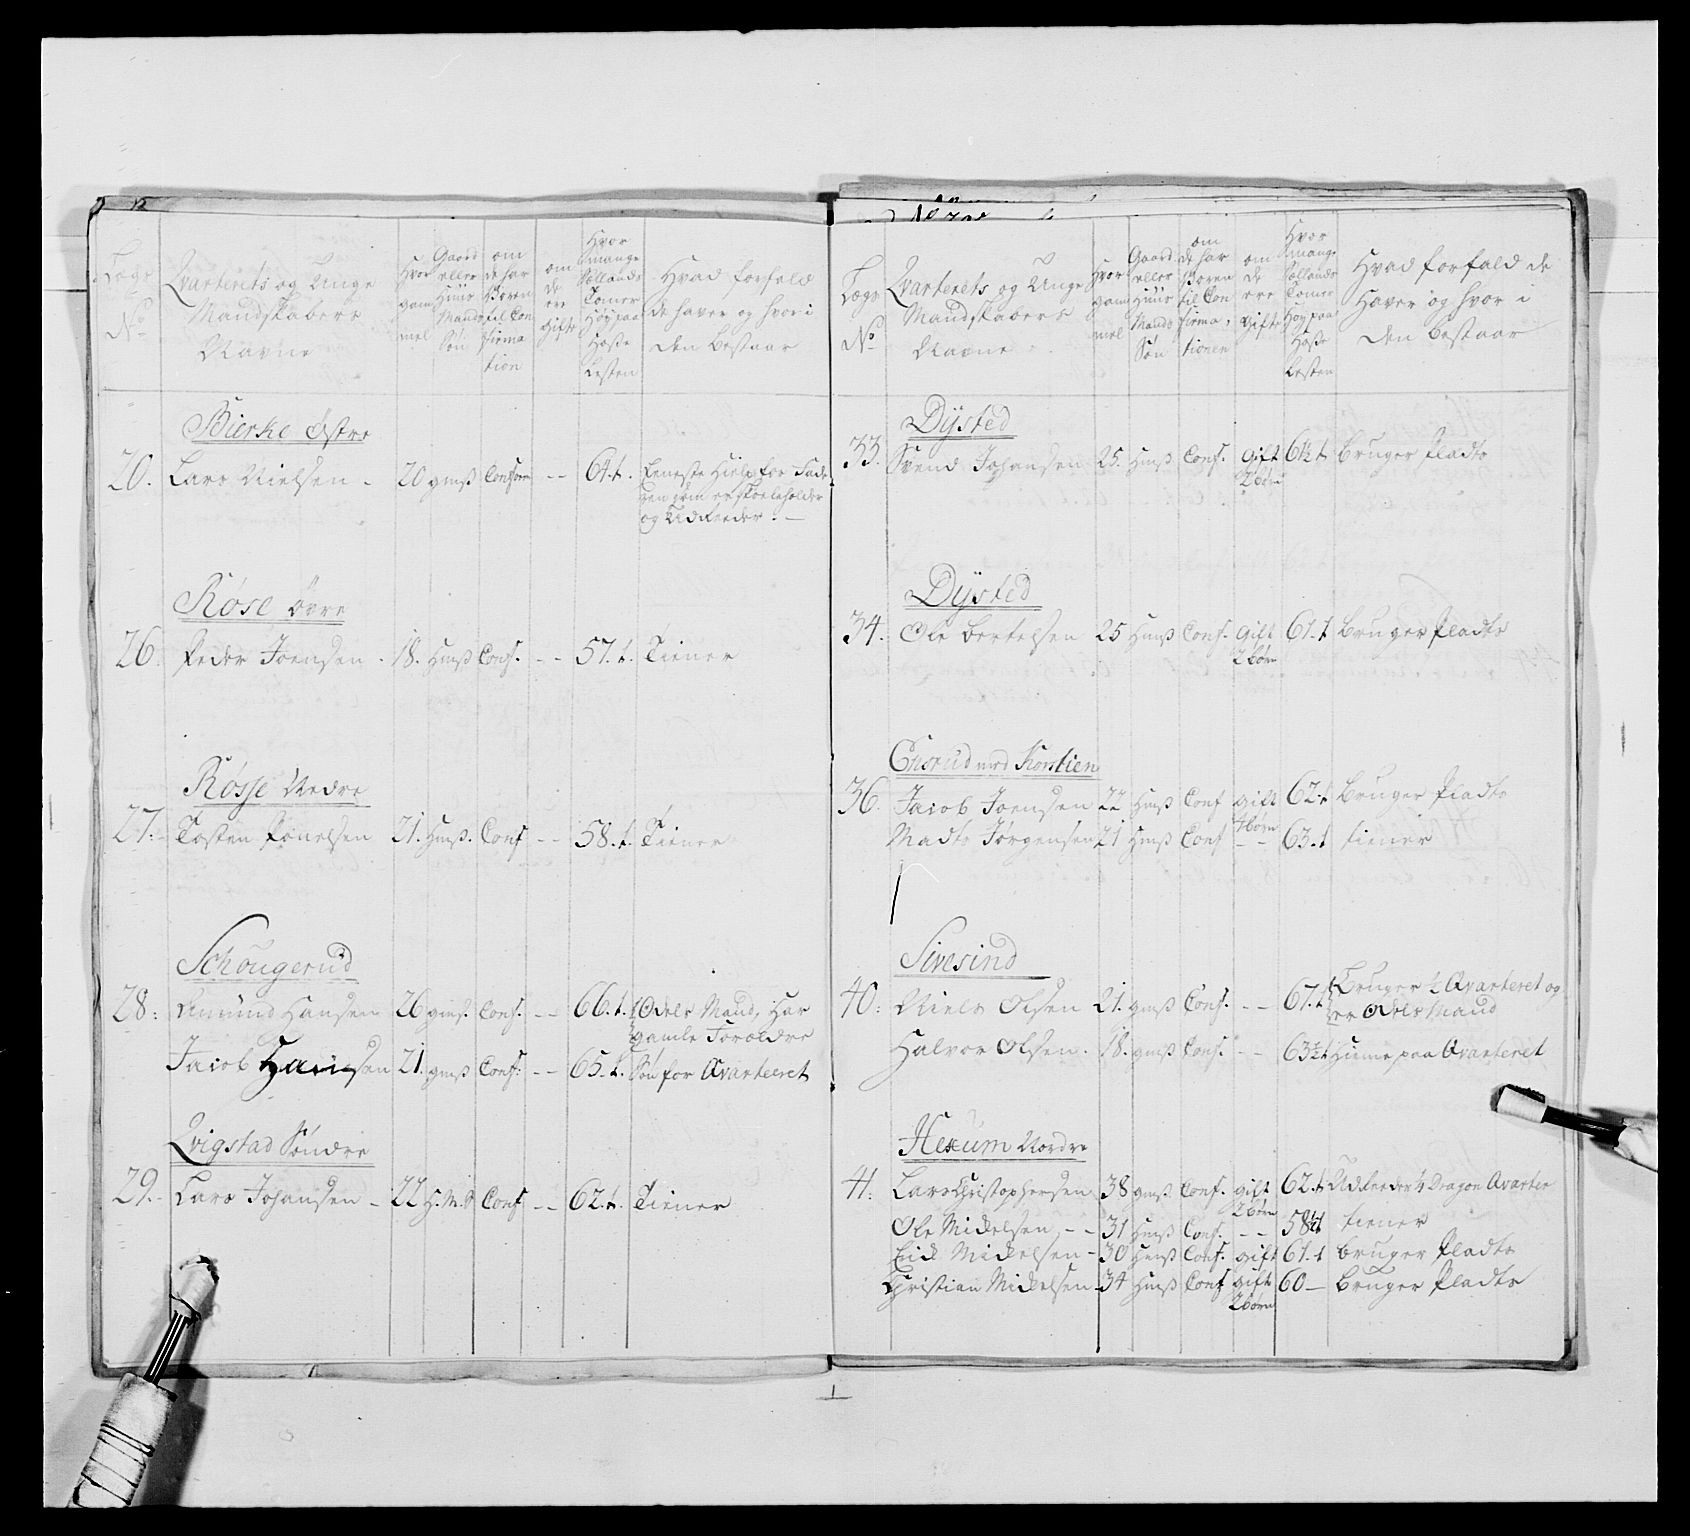 Lægs
No
Qvarterets og Unge
Mandskabers
Navne
Hvor
gam
mel
Gaard
eller
Huus
Mands
Søn
om
de har
Været
til Con
firma
tion
om
de
ere
gifte
Hvor
mange
Siellands
Tomer
Høy paa
Hoße
Lesten
Hvad forfald
de haver og hvor i
den bestaar
Bierke Østre
20. Lars Nielsen - 20 gmß Confirm -- 64.t. Eeneste Hielp for Fade
ren som er Skoeleholder
og Udreeder. -
Røse øvre
26. Peder Joensen - 18. Hmß Conf. -- 57.t. Tiener
Røsse Nedre
27. Tosten Povelsen 21. Hmß. Conf -- 58.t. Tiener
Schougerud
28. Amund Hansen 26 gmß. Conf. -- 66.t. Odels Mand, Har
gamle Foreldre
Jacob Hansen 21. gmß Conf. -- 65.t. Søn for Qvarteeret
Qvigstad Søndre
29. Lars Johansen - 22 H.M.S Conf -- 62.t. Tiener
Lægs
No
Qvarterets og Unge
Mandskabers
Navne
Hvor
gam
mel
Gaard
eller
Huus
Mands
Søn
om
de har
Været
til Con
firma,
tionen
om
de
ere
gifte
Hvor
mange
Siellands
Tomer
Høy paa
Hoße
Lesten
Hvad forfald de
haver og hvor i
den bestaar
Dÿsted
33. Svend Johansen 25. Hmß Conf. Gift 61½ t bruger Pladts
2 børn
Dÿsted
34. Ole Bertelsen 25 Hmß Conf. Gift 61.t bruger Pladts
2 børn
Ensrud med Korstien
36. Jacob Joensen 22 Hmß Conf gift 62.t bruger Pladts
1 børn
Madts Jørgensen 21 Hmß Conf -- 63.t tiener
Sivesind
40. Niels Olsen 21. gmß Conf. -- 67.t Bruger ½ Qvarteret og
er Odels Mand
Halvor Olsen. 18. gmß Conf. -- 63½ t Hiemme paa Qvarteret
Hexum Nordre
41. Lars Christophersen 38 gmß Conf. gift 62.t Udreeder ½ Dragon Qvarter
2 børn
Ole Mickelsen -- 31 Hmß Conf. -- 58½ t tiener
Erick Mickelsen - 30 Hmß Conf. gift 61.t bruger Pladts
Christian Mickelsen 34 Hmß Conf gift 60 - bruger Pladts
2 børn